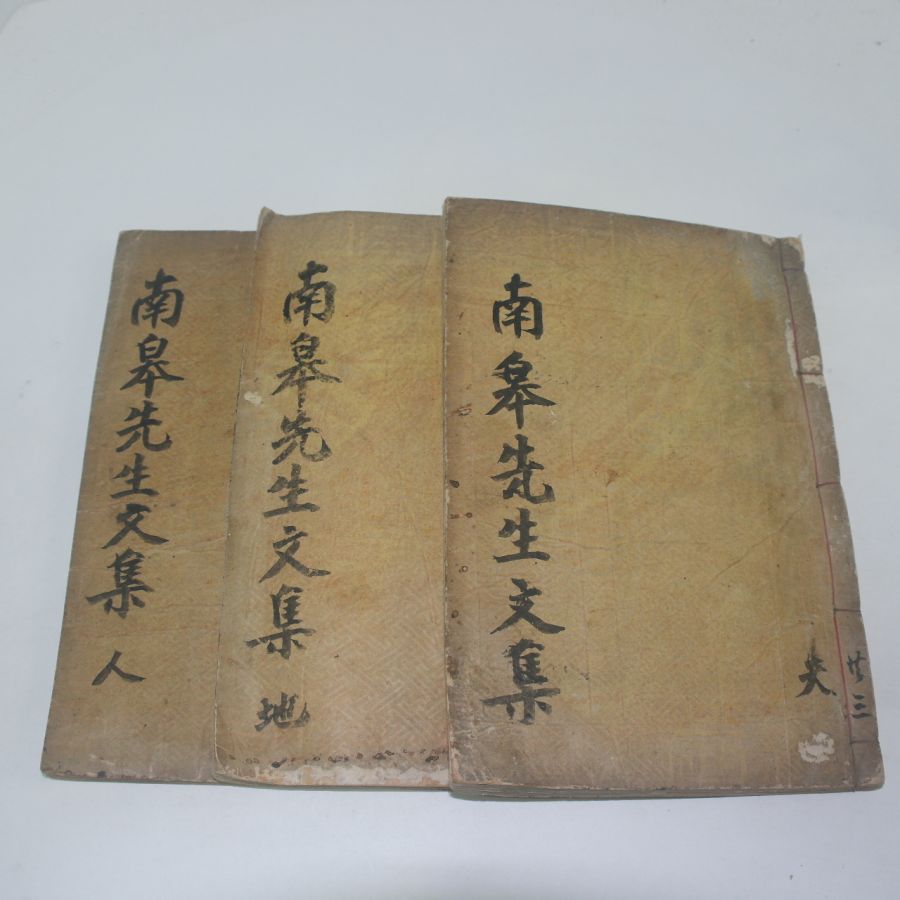 共三
天
南皋先生文集
南皋先生文集 地
南皋先生文集 人